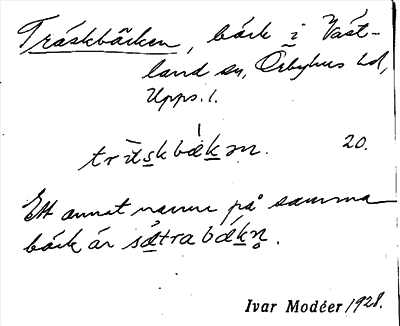 Träskbäcken, bäck i Väst-
land sn, Örbyhus hd,
Upps. l.
trǟskbækən. 20.
Ett annat namn på samma
bäck är sætra bækn̥.
Ivar Modéer 1928.